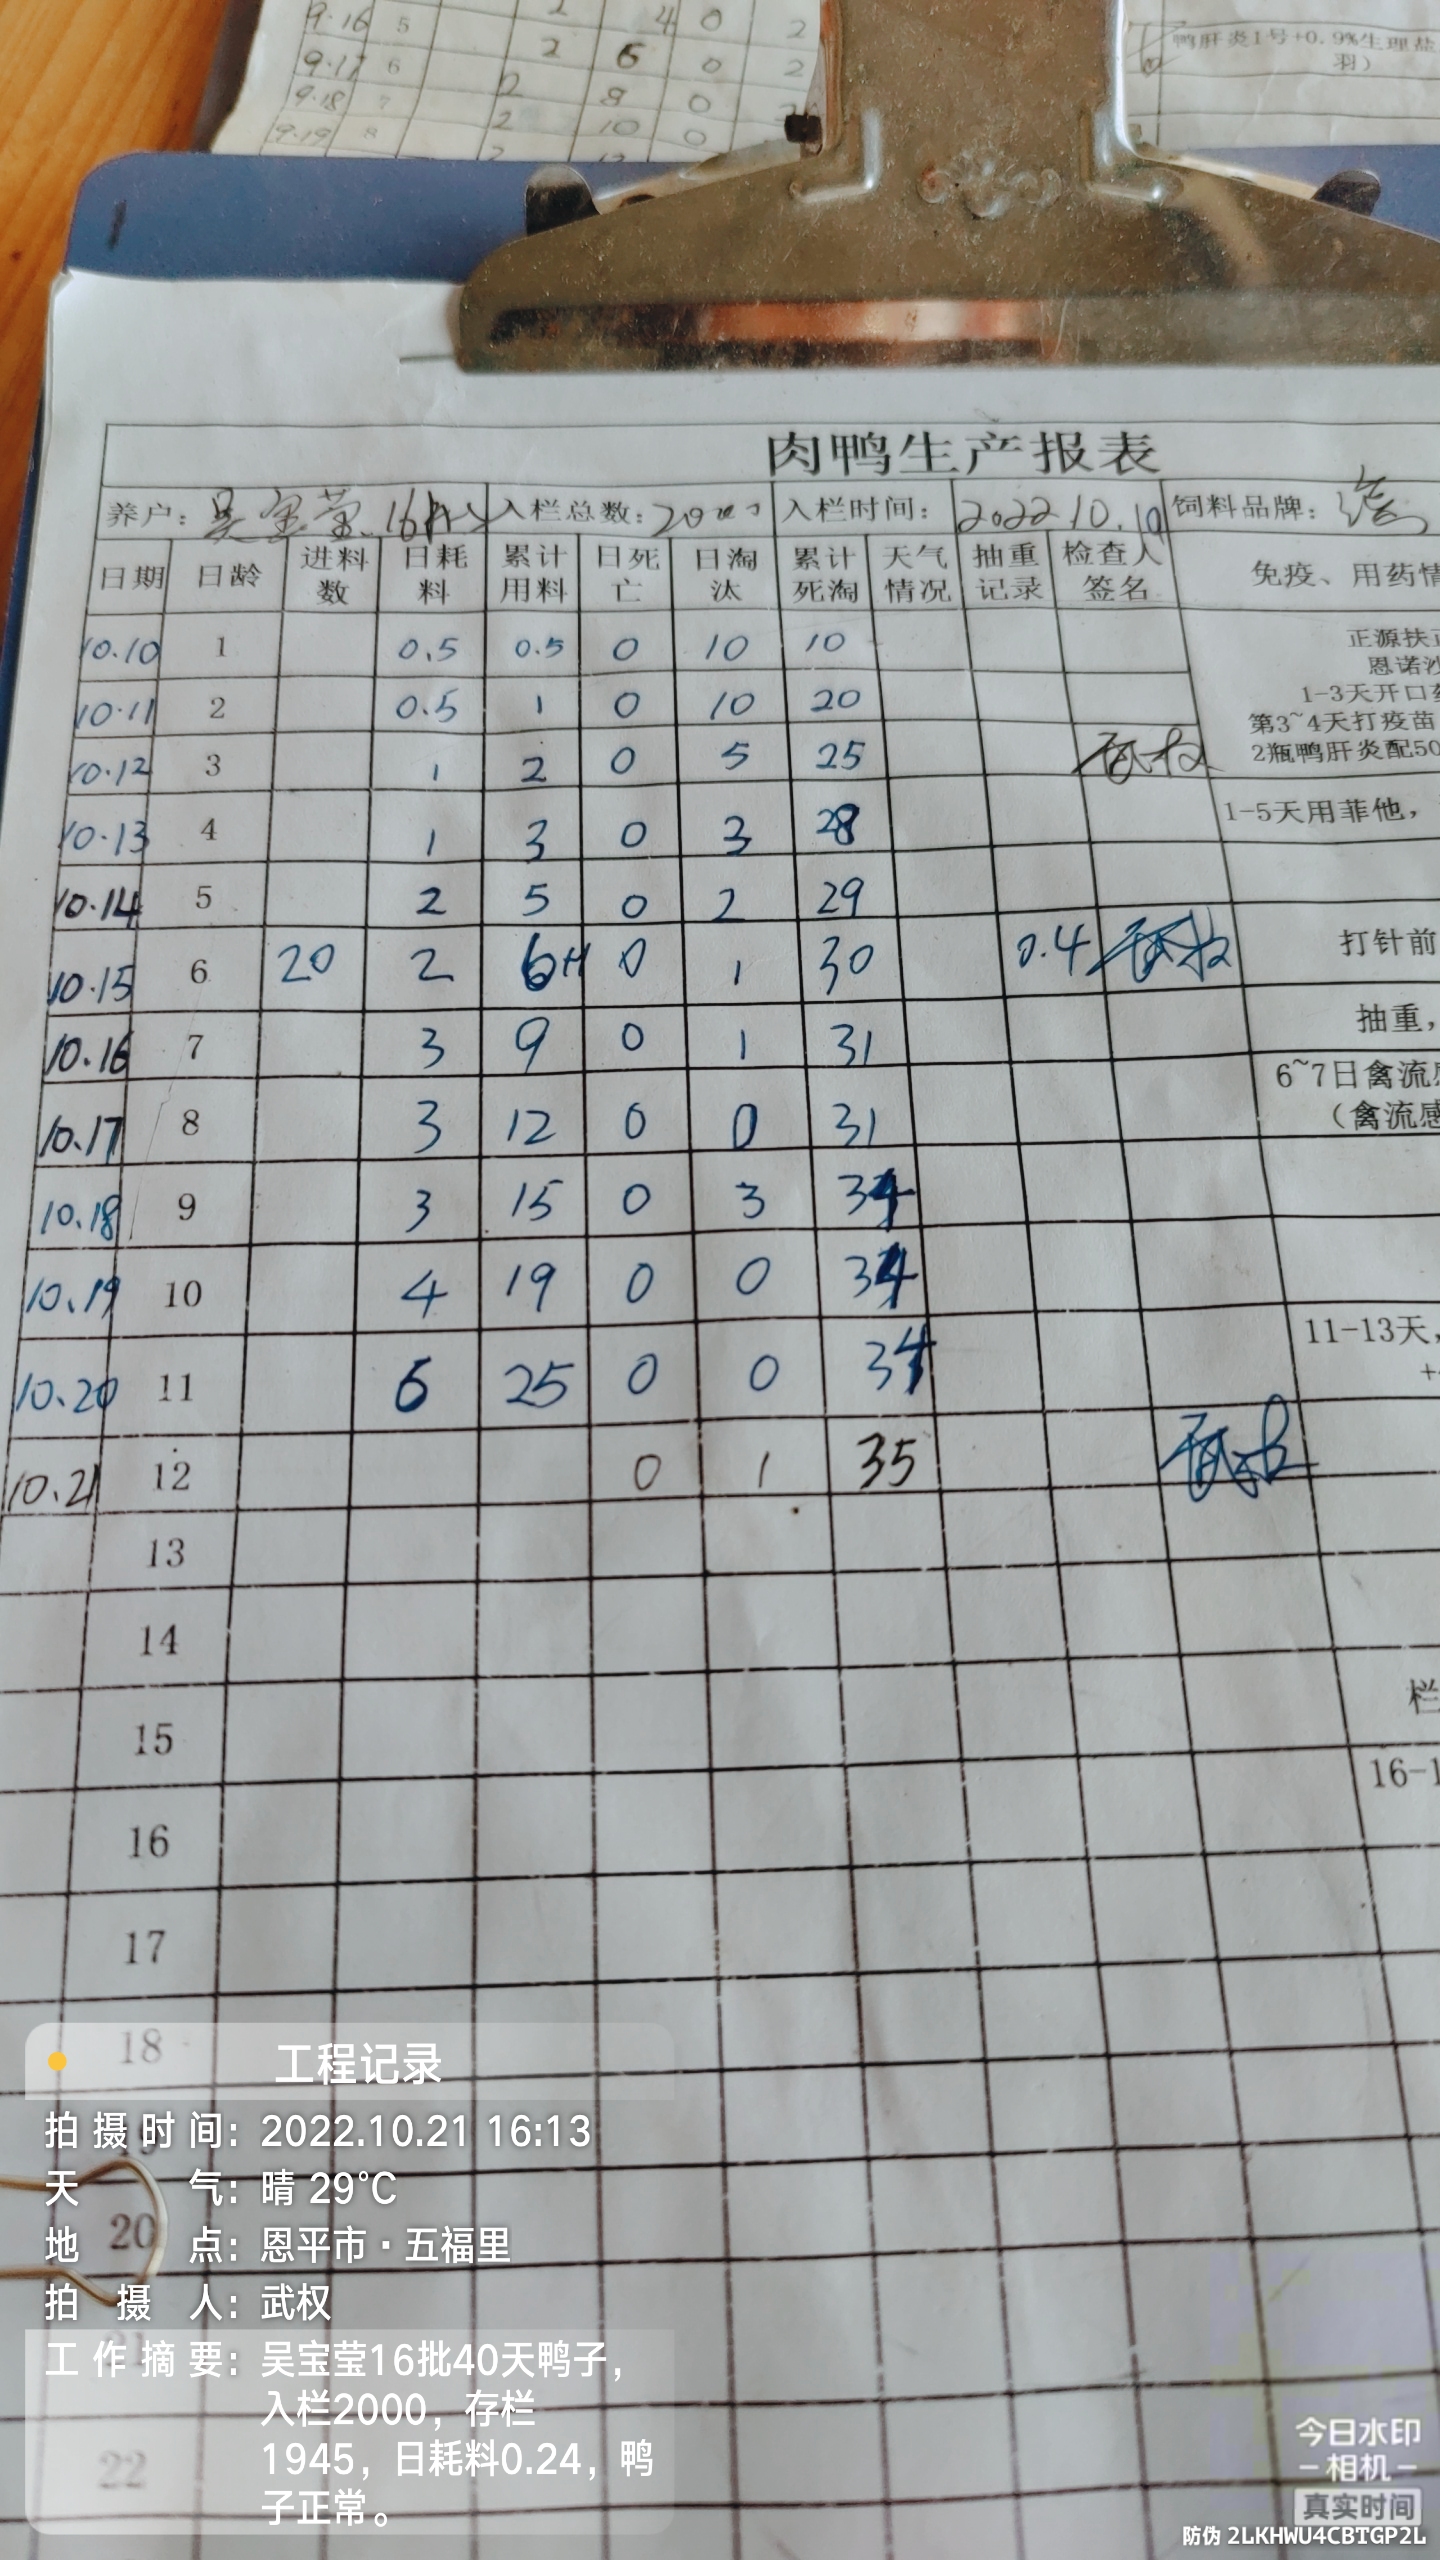 9.16 5 2 4 0 2
9.17 6 2 6 0 2
9.18 7 2 8 0
9.19 8 2 10 0
鸭肝炎1号+0.9%生理盐
羽）
肉鸭生产报表
养户：吴宝莹 16 入栏总数：入栏时间：2022.10.10 饲料品牌：
日期 日龄 进料数 日耗料 累计用料 日死亡 日淘汰 累计死淘 天气情况 抽重记录 检查人签名 免疫、用药情
10.10 1 0.5 0.5 0 10 10
正源扶正
恩诺沙
10.11 2 0.5 1 0 10 20
1-3天开口药
第3~4天打疫苗
10.12 3 1 2 0 5 25 武权
2瓶鸭肝炎配50
10.13 4 1 3 0 3 28 1-5天用菲他，
10.14 5 2 5 0 2 29
10.15 6 20 2 6 0 1 30 0.4 武权 打针前
10.16 7 3 9 0 1 31 抽重，
10.17 8 3 12 0 0 31 6~7日禽流感
（禽流感
10.18 9 3 15 0 3 34
10.19 10 4 19 0 0 34
10.20 11 6 25 0 0 34 11-13天，
10.21 12 0 1 35 武权
13
14
15 栏
16 16-1
17
18
20
21
22
工程记录
拍摄时间：2022.10.21 16:13
天气：晴 29℃
地点：恩平市·五福里
拍摄人：武权
工作摘要：吴宝莹16批40天鸭子，
入栏2000，存栏
1945，日耗料0.24，鸭
子正常。
今日水印
相机
真实时间
防伪 2LKHWU4CBTGP2L